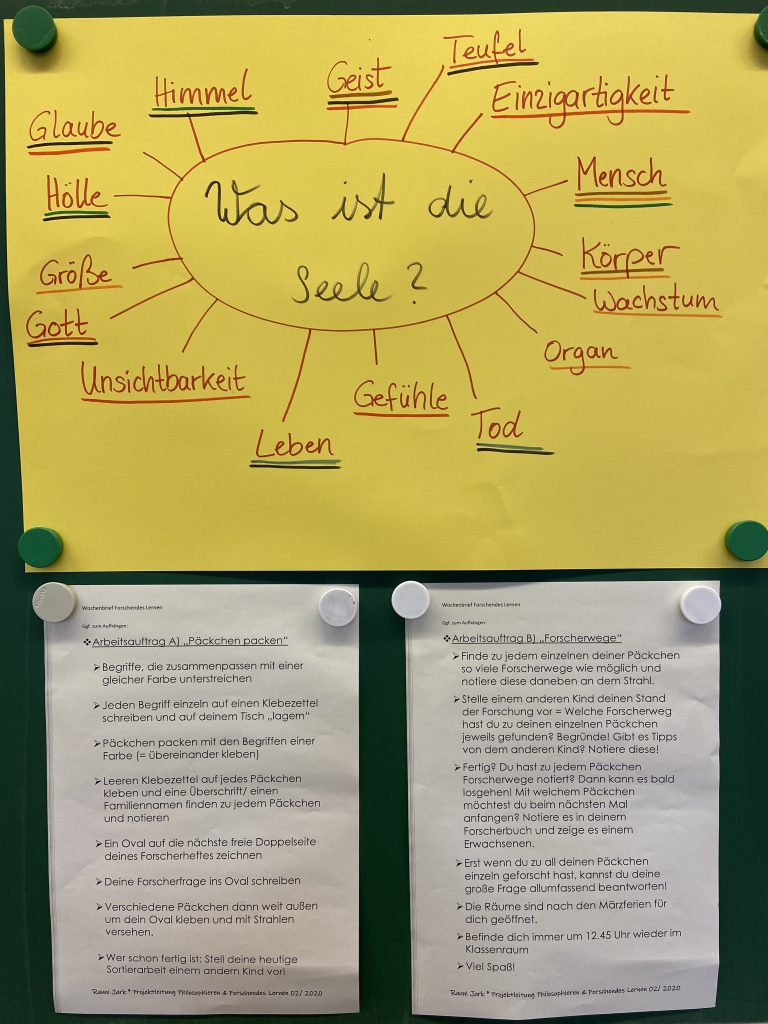 Teufel
Geist
Himmel
Einzigartigkeit
Glaube
Mensch
Hölle
Was ist die
Seele?
Körper
Größe
Wachstum
Gott
Organ
Unsichtbarkeit
Gefühle
Tod
Leben
Wochenbrief Forschendes Lernen
Ggf. zum Aufhängen:
❖Arbeitsauftrag A) „Päckchen packen“
➢Begriffe, die zusammenpassen mit einer
gleicher Farbe unterstreichen
➢Jeden Begriff einzeln auf einen Klebezettel
schreiben und auf deinem Tisch „lagern“
➢Päckchen packen mit den Begriffen einer
Farbe (= übereinander kleben)
➢Leeren Klebezettel auf jedes Päckchen
kleben und eine Überschrift/ einen
Familiennamen finden zu jedem Päckchen
und notieren
➢Ein Oval auf die nächste freie Doppelseite
deines Forscherheftes zeichnen
➢Deine Forscherfrage ins Oval schreiben
➢Verschiedene Päckchen dann weit außen
um dein Oval kleben und mit Strahlen
versehen.
➢Wer schon fertig ist: Stell deine heutige
Sortierarbeit einem andern Kind vor!
Rauni Jark * Projektleitung Philosophieren & Forschendes Lernen 02/ 2020
Wochenbrief Forschendes Lernen
Ggf. zum Aufhängen:
❖Arbeitsauftrag B) „Forscherwege“
➢Finde zu jedem einzelnen deiner Päckchen
so viele Forscherwege wie möglich und
notiere diese daneben an dem Strahl.
➢Stelle einem anderen Kind deinen Stand
der Forschung vor = Welche Forscherweg
hast du zu deinen einzelnen Päckchen
jeweils gefunden? Begründe! Gibt es Tipps
von dem anderen Kind? Notiere diese!
➢Fertig? Du hast zu jedem Päckchen
Forscherwege notiert? Dann kann es bald
losgehen! Mit welchem Päckchen
möchtest du beim nächsten Mal
anfangen? Notiere es in deinem
Forscherbuch und zeige es einem
Erwachsenen.
➢Erst wenn du zu all deinen Päckchen
einzeln geforscht hast, kannst du deine
große Frage allumfassend beantworten!
➢Die Räume sind nach den Märzferien für
dich geöffnet.
➢Befinde dich immer um 12.45 Uhr wieder im
Klassenraum
➢Viel Spaß!
Rauni Jark * Projektleitung Philosophieren & Forschendes Lernen 02/ 2020